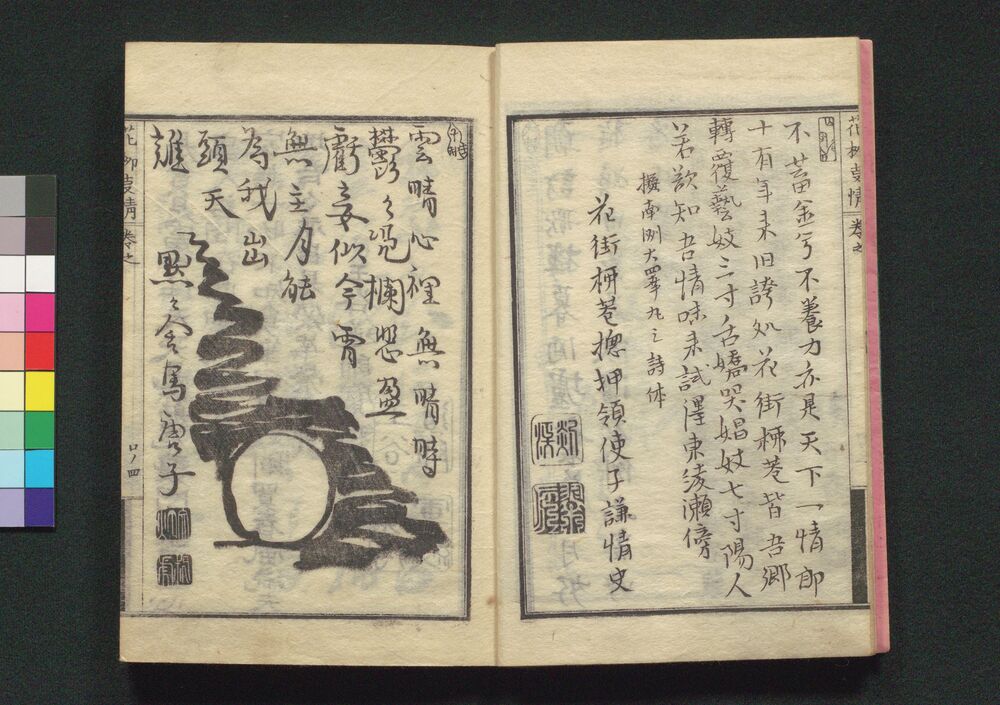 不蓄金兮不養力亦是天下一情郎
十有年来旧誇処花街柳巷皆吾郷
轉覆藝妓三寸舌嬌哭娼妓七寸陽人
若欲知吾情味来試澤東綾瀬傍
擬南洲大 先之詩体
花街柳巷揔押領使子謙情史
雲晴心裡無晴時
欝々凭欄思盈
虧妾似今宵
無主月能
為我出
頭天
離
黙々舎寫唐子
花柳事情 巻之
口ノ四
花柳事情 巻之